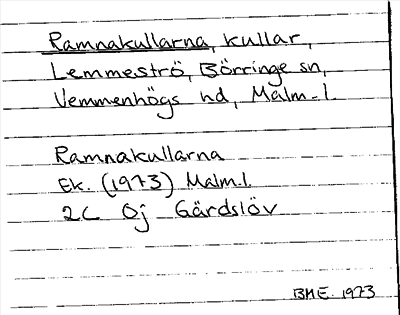 Ramnakullarna, kullar,
Lemmeströ, Börringe sn,
Vemmenhögs hd, Malm.l.
Ramnakullarna
Ek. (1973) Malm.l.
2C 0j Gärdslöv
BHE. 1973